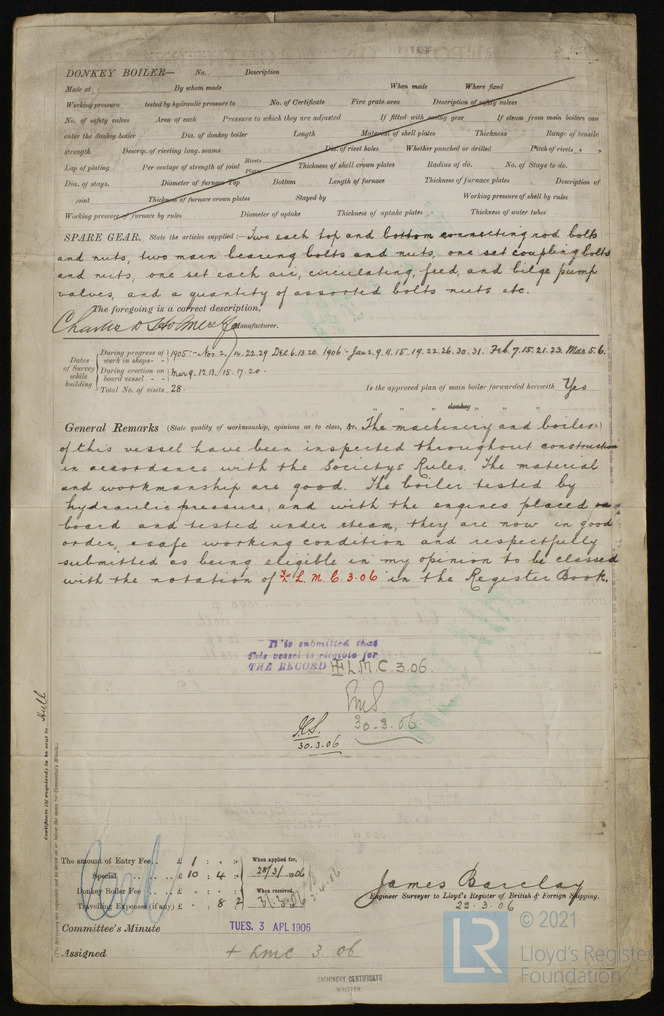 DONKEY BOILER— No. Description
Made at By whom made When made Where fixed
Working pressure tested by hydraulic pressure to No. of Certificate Fire grate area Description of safety valves
No. of safety valves Area of each Pressure to which they are adjusted If fitted with easing gear If steam from main boilers can
enter the donkey boiler Dia. of donkey boiler Length Material of shell plates Thickness Range of tensile
strength Descrip. of riveting long. seams Dia. of rivet holes Whether punched or drilled Pitch of rivets
Lap of plating Per centage of strength of joint Rivets Plates Thickness of shell crown plates Radius of do. No. of Stays to do.
Dia. of stays. Diameter of furnace Top Bottom Length of furnace Thickness of furnace plates Description of
joint Thickness of furnace crown plates Stayed by Working pressure of shell by rules
Working pressure of furnace by rules Diameter of uptake Thickness of uptake plates Thickness of water tubes
SPARE GEAR. State the articles supplied:— Two each top and bottom connecting rod bolts
and nuts, two main bearing bolts and nuts, one set coupling bolts
and nuts, one set each air, circulating, feed, and bilge pump
valves, and a quantity of assorted bolts nuts etc.
The foregoing is a correct description,
Charles D Holmes & Co Manufacturer.
Dates of Survey while building
During progress of work in shops- - 1905:- Nov. 2. 14. 22. 29 Dec 6. 13. 20. 1906 - Jan 2. 9. 11. 15. 19. 22. 26. 30. 31. Feb. 7. 15. 21. 23. Mar 5. 6.
During erection on board vessel - - Mar 9. 12. 13. 15. 17. 20.
Total No. of visits 28. Is the approved plan of main boiler forwarded herewith Yes
" " donkey " " "
General Remarks (State quality of workmanship, opinions as to class, &c. The machinery and boiler)
of this vessel have been inspected throughout construction
in accordance with the Societys Rules. The material
and workmanship are good. The boiler tested by
hydraulic pressure, and with the engines placed on
board and tested under steam, they are now in good
order, & safe working condition and respectfully
submitted as being eligible in my opinion to be classed
with the notation of + L. M. C. 3.06 in the Register Book.
It is submitted that
this vessel is eligible for
THE RECORD + L.M.C. 3.06.
30.3.06
J.S.
30.3.06
Certificate (if required) to be sent to Hull
The amount of Entry Fee.. £ 1 : - : "
Special .. .. £ 10 : 4 : "
Donkey Boiler Fee .. .. £ : :
Travelling Expenses (if any) £ - : 8 2
When applied for,
28/3/06
When received,
31.3.06
James Barclay
Engineer Surveyor to Lloyd's Register of British & Foreign Shipping.
22.3.06
Committee's Minute TUES. 3 APL 1906
Assigned + LMC 3.06
MACHINERY CERTIFICATE
WRITTEN.
LR
© 2021
Lloyd's Register
Foundation